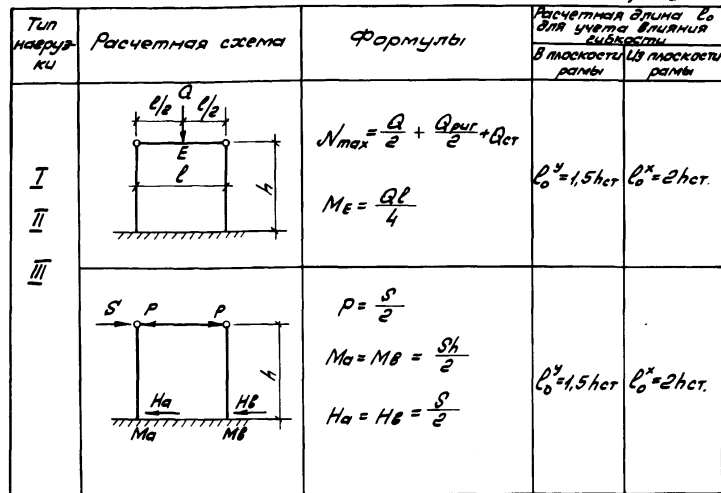 Тип нагруз-ки
Расчетная схема
Формулы
Расчетная длина l₀ для учета влияния гибкости
В плоскости рамы
Из плоскости рамы
I
II
III
Q
l/2 l/2
E
l
h
Nmax = Q/2 + Qриг/2 + Qст
ME = Ql/4
l₀ʸ = 1,5hст
l₀ˣ = 2hст.
S P P
h
Ha Hв
Ma Mв
P = S/2
Ma = Mв = Sh/2
Ha = Hв = S/2
l₀ʸ = 1,5hст
l₀ˣ = 2hст.